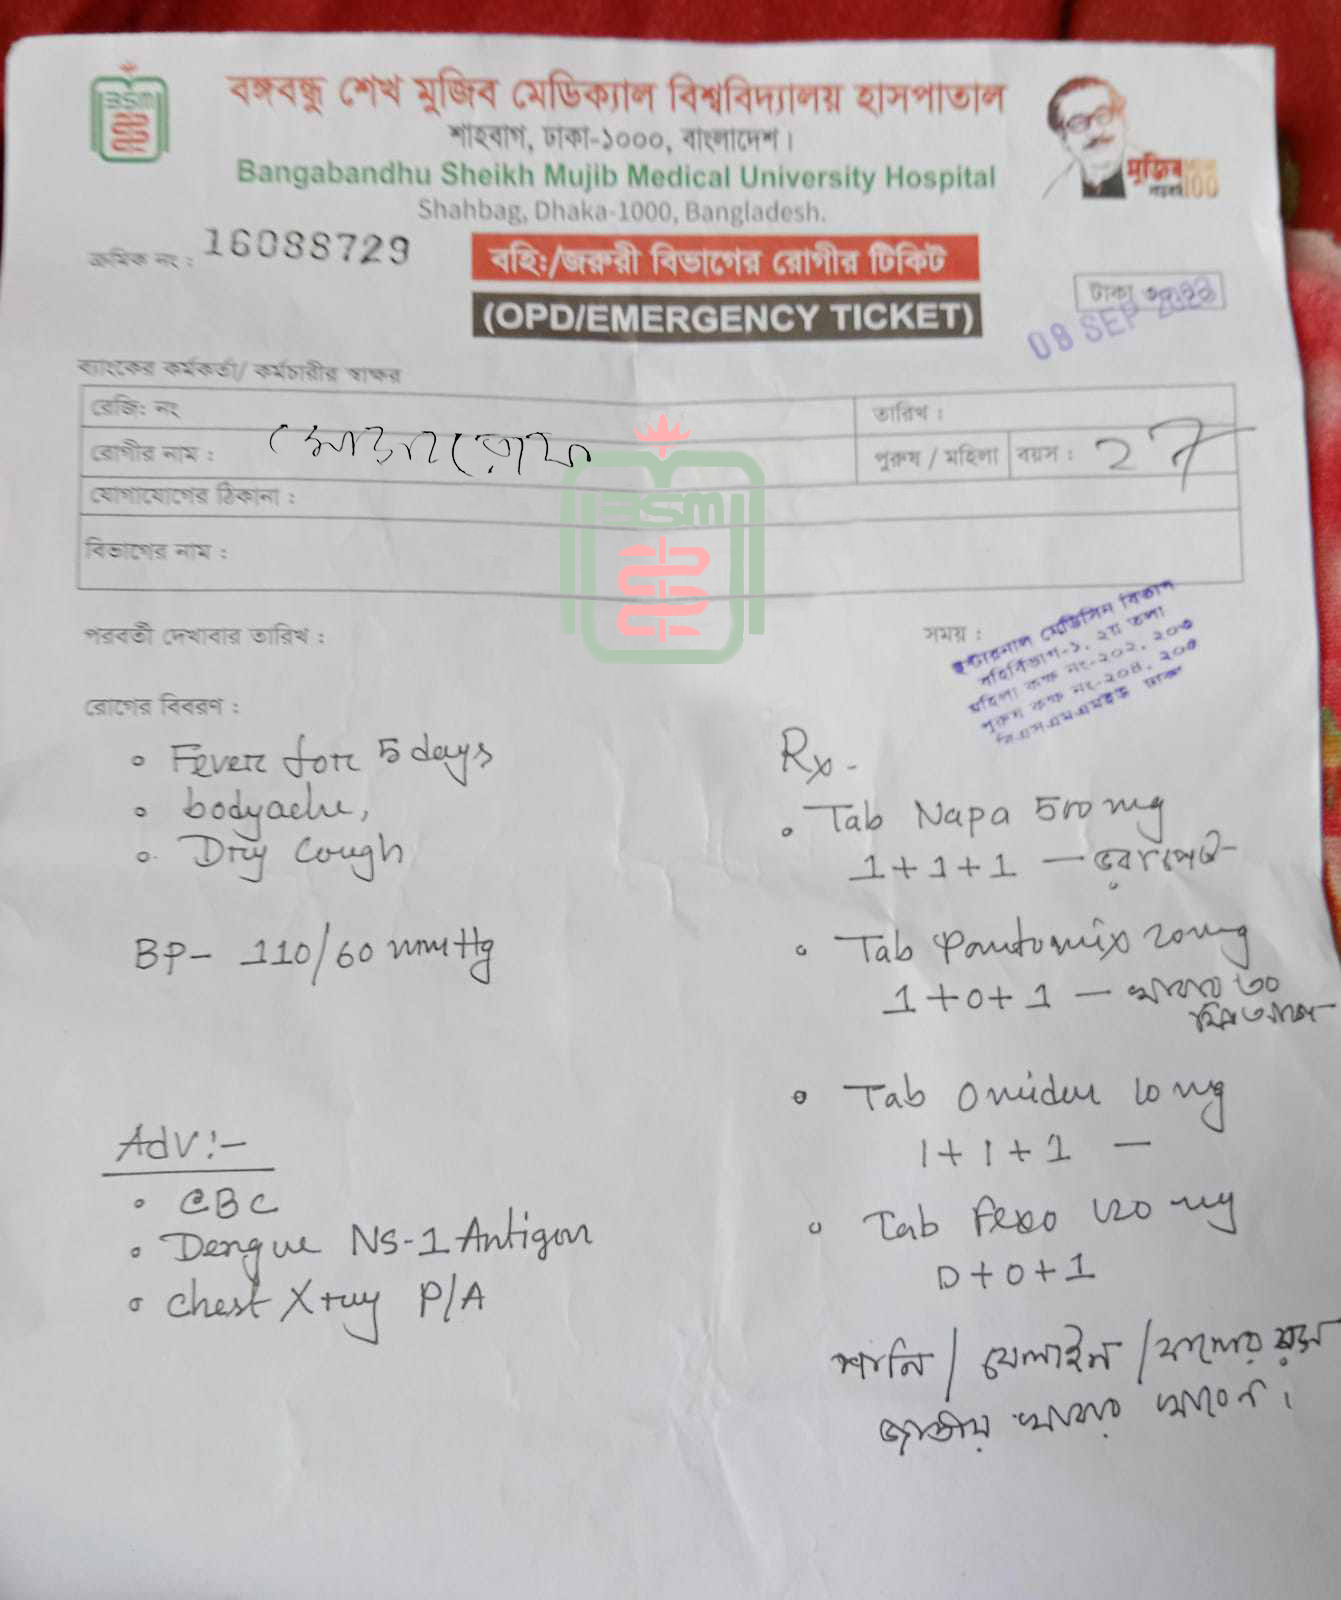 বঙ্গবন্ধু শেখ মুজিব মেডিক্যাল বিশ্ববিদ্যালয় হাসপাতাল
শাহবাগ, ঢাকা-১০০০, বাংলাদেশ।
Bangabandhu Sheikh Mujib Medical University Hospital
Shahbag, Dhaka-1000, Bangladesh.
BSM
মুজিব 100
ক্রমিক নং: 16088729
বহিঃ/জরুরী বিভাগের রোগীর টিকিট
(OPD/EMERGENCY TICKET)
টাকা
08 SEP
ব্যাংকের কর্মকর্তা/ কর্মচারীর স্বাক্ষর
রেজি: নং
তারিখ :
রোগীর নাম :
পুরুষ / মহিলা
বয়স : 27
যোগাযোগের ঠিকানা :
বিভাগের নাম :
BSM
পরবর্তী দেখাবার তারিখ :
সময় :
ইন্টারনাল মেডিসিন বিভাগ
বহির্বিভাগ-১, ২য় তলা
মহিলা কক্ষ নং-২০২, ২০৩
পুরুষ কক্ষ নং-২০৪, ২০৫
বিএসএমএমইউ ঢাকা
রোগের বিবরণ :
Fever for 5 days
bodyache,
Dry Cough
BP- 110/60 mmHg
Adv:-
CBC
Dengue NS-1 Antigen
Chest X-ray P/A
Rx-
Tab Napa 500 mg
1+1+1 — ভরাপেটে
Tab Pantomix 20mg
1+0+1 — খাবার ৩০
মিনিট আগে
Tab Omidon 10 mg
1+1+1 —
Tab Fexo 120 mg
0+0+1
পানি / সেলাইন / ফলের রস
জাতীয় খাবার খাবেন।